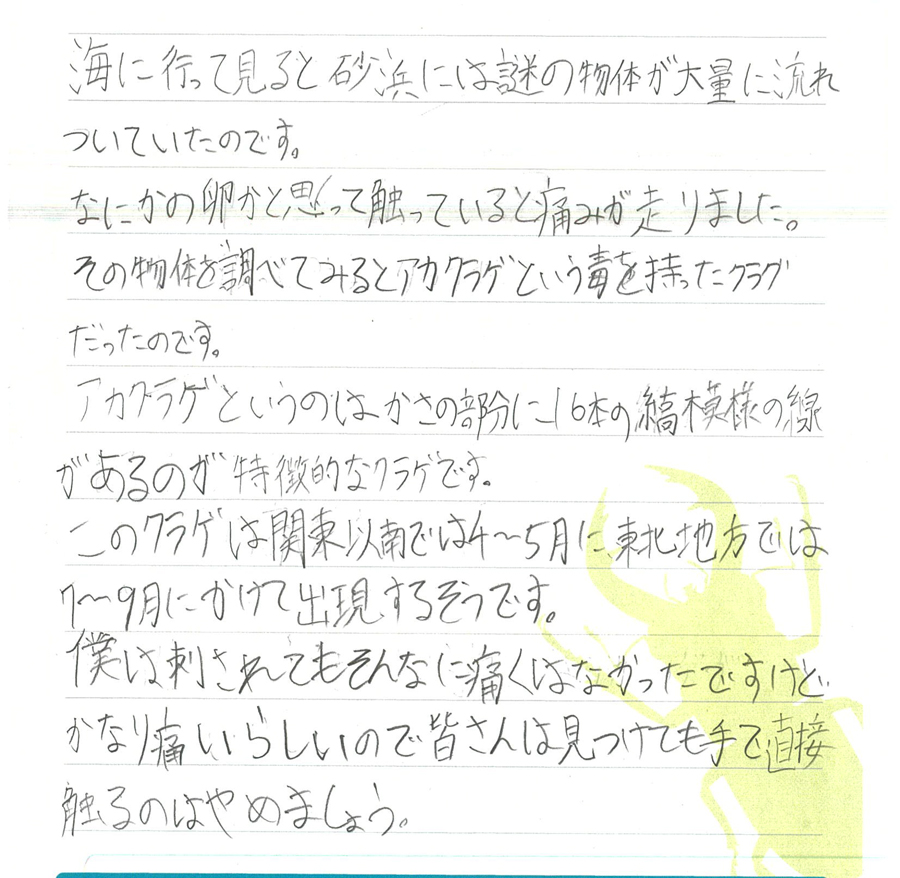 海に行って見ると砂浜には謎の物体が大量に流れ
ついていたのです。
なにかの卵かと思って触っていると痛みが走りました。
その物体を調べてみるとアカクラゲという毒を持ったクラゲ
だったのです。
アカクラゲというのはかさの部分に16本の縞模様の線
があるのが特徴的なクラゲです。
このクラゲは関東以南では4〜5月に、東北地方では
7〜9月にかけて出現するそうです。
僕は刺されてもそんなに痛くはなかったですけど、
かなり痛いらしいので皆さんは見つけても手で直接
触るのはやめましょう。